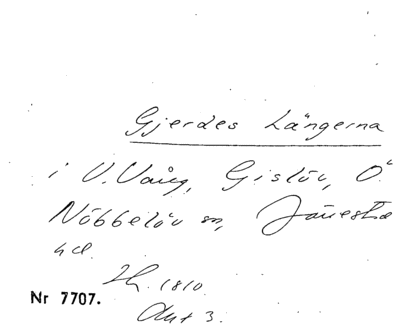 Gjerdes Längerna
i V. Vång, Gislöv, Ö.
Nöbbelöv sn, Järrestad
hd.
1810.
Nr 7707.
Akt 3.